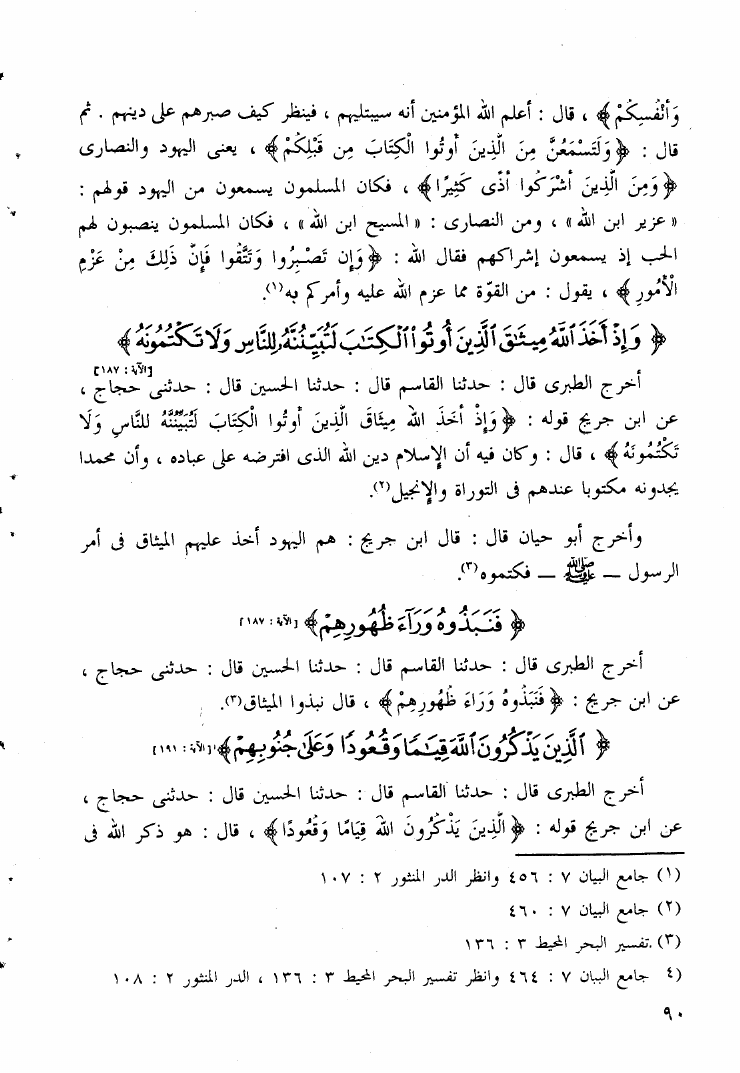 وَأَنْفُسِكُمْ ﴾ ، قال : أعلم الله المؤمنين أنه سيبتليهم ، فينظر كيف صبرهم على دينهم . ثم
قال : ﴿ وَلَتَسْمَعُنَّ مِنَ الَّذِينَ أُوتُوا الْكِتَابَ مِن قَبْلِكُمْ ﴾ ، يعنى اليهود والنصارى
﴿ وَمِنَ الَّذِينَ أَشْرَكُوا أَذًى كَثِيرًا ﴾ ، فكان المسلمون يسمعون من اليهود قولهم :
« عزير ابن الله » ، ومن النصارى : « المسيح ابن الله » ، فكان المسلمون ينصبون لهم
الحب إذ يسمعون إشراكهم فقال الله : ﴿ وَإِن تَصْبِرُوا وَتَتَّقُوا فَإِنَّ ذَلِكَ مِنْ عَزْمِ
الْأُمُورِ ﴾ ، يقول : من القوّة مما عزم الله عليه وأمركم به(١).
﴿ وَإِذْ أَخَذَ ٱللَّهُ مِيثَٰقَ ٱلَّذِينَ أُوتُوا۟ ٱلْكِتَٰبَ لَتُبَيِّنُنَّهُۥ لِلنَّاسِ وَلَا تَكْتُمُونَهُۥ ﴾
[الآية : ١٨٧]
أخرج الطبرى قال : حدثنا القاسم قال : حدثنا الحسين قال : حدثنى حجاج ،
عن ابن جريج قوله : ﴿ وَإِذْ أَخَذَ الله مِيثَاقَ الَّذِينَ أُوتُوا الْكِتَابَ لَتُبَيِّنُنَّهُ للنَّاسِ وَلَا
تَكْتُمُونَهُ ﴾ ، قال : وكان فيه أن الإسلام دين الله الذى افترضه على عباده ، وأن محمدا
يجدونه مكتوبا عندهم فى التوراة والإنجيل(٢).
وأخرج أبو حيان قال : قال ابن جريج : هم اليهود أخذ عليهم الميثاق فى أمر
الرسول — ﷺ — فكتموه(٣).
﴿ فَنَبَذُوهُ وَرَآءَ ظُهُورِهِمْ ﴾ [الآية : ١٨٧]
أخرج الطبرى قال : حدثنا القاسم قال : حدثنا الحسين قال : حدثنى حجاج ،
عن ابن جريج : ﴿ فَنَبَذُوهُ وَرَاءَ ظُهُورِهِمْ ﴾ ، قال نبذوا الميثاق(٣).
﴿ ٱلَّذِينَ يَذْكُرُونَ ٱللَّهَ قِيَٰمًا وَقُعُودًا وَعَلَىٰ جُنُوبِهِمْ ﴾ [الآية : ١٩١]
أخرج الطبرى قال : حدثنا القاسم قال : حدثنا الحسين قال : حدثنى حجاج ،
عن ابن جريج قوله : ﴿ الَّذِينَ يَذْكُرُونَ اللَّهَ قِيَامًا وَقُعُودًا ﴾ ، قال : هو ذكر الله فى
(١) جامع البيان ٧ : ٤٥٦ وانظر الدر المنثور ٢ : ١٠٧
(٢) جامع البيان ٧ : ٤٦٠
(٣) تفسير البحر المحيط ٣ : ١٣٦
٤) جامع البيان ٧ : ٤٦٤ وانظر تفسير البحر المحيط ٣ : ١٣٦ ، الدر المنثور ٢ : ١٠٨
٩٠